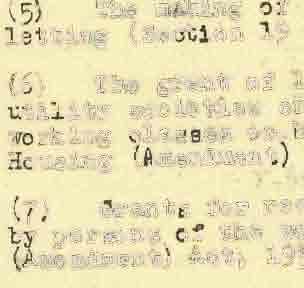 (5) The making of
letting (Section 19
(6) The grant of l
utility societies o
working classes or
Housing (Amendment)
(7) Grants for rec
by persons of the wo
(Amendment) Act, 19